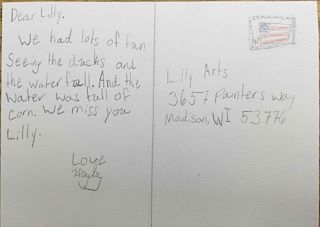 Dear Lilly.
We had lots of fun
Seeing the ducks and
the waterfall. And the
Water was full of
corn. We miss you
Lilly.
Love
Lilly Arts
3657 Painters Way
Madison, WI 53776